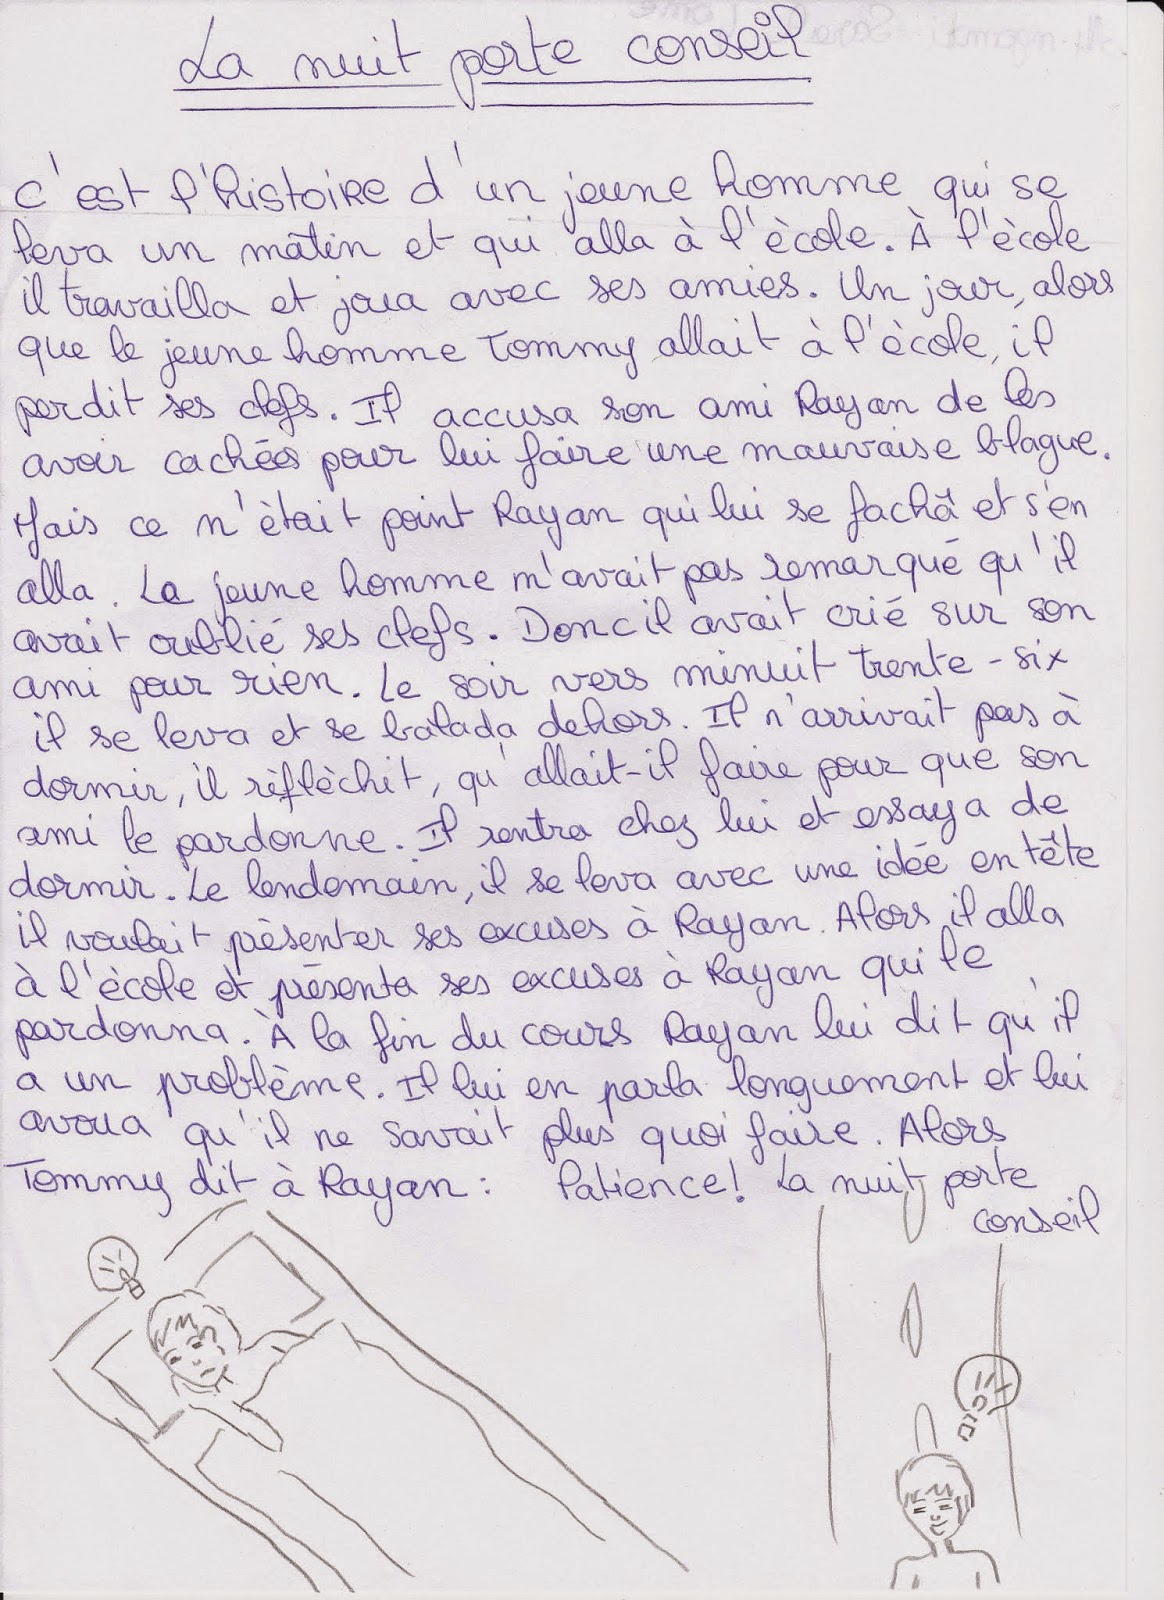 La nuit porte conseil
c'est l'histoire d'un jeune homme qui se
leva un mâtin et qui alla à l'ècole. À l'ècole
il travailla et joua avec ses amies. Un jour, alors
que le jeune homme Tommy allait à l'ècole, il
perdit ses clefs. Il accusa son ami Rayan de les
avoir cachées pour lui faire une mauvaise blague.
Mais ce n'ètait point Rayan qui lui se fachâ et s'en
alla. Le jeune homme n'avait pas remarqué qu'il
avait oublié ses clefs. Donc il avait crié sur son
ami pour rien. Le soir vers minuit trente-six
il se leva et se balada dehors. Il n'arrivait pas à
dormir, il rèflèchit, qu'allait-il faire pour que son
ami le pardonne. Il rentra chez lui et essaya de
dormir. Le lendemain, il se leva avec une idée en tête
il voulait prèsenter ses excuses à Rayan. Alors il alla
à l'ècole et prèsenta ses excuses à Rayan qui le
pardonna. À la fin du cours Rayan lui dit qu'il
a un problème. Il lui en parla longuement et lui
avoua qu'il ne savait plus quoi faire. Alors
Tommy dit à Rayan : Patience! La nuit porte
conseil